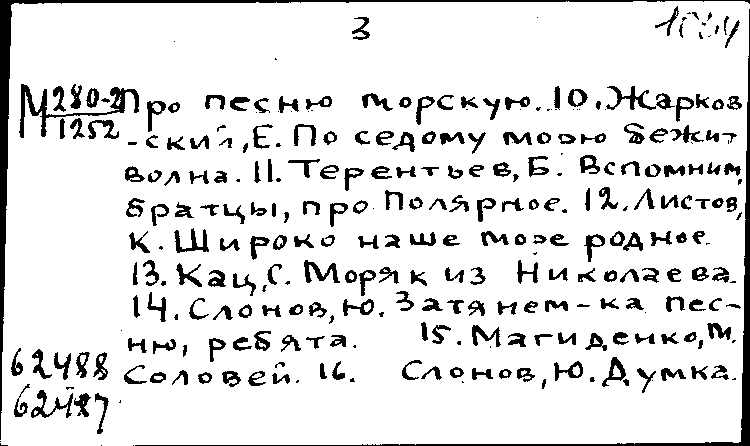 3
М 280-2
1252
Про песню морскую. 10. Жарков
-ский, Е. По седому морю бежит
волна. 11. Терентьев, Б. Вспомним,
братцы, про Полярное. 12. Листов,
К. Широко наше море родное.
13. Кац, С. Моряк из Николаева.
14. Слонов, Ю. Затянем-ка пес-
ню, ребята. 15. Магиденко, М.
Соловей. 16. Слонов, Ю. Думка.
62488
62487